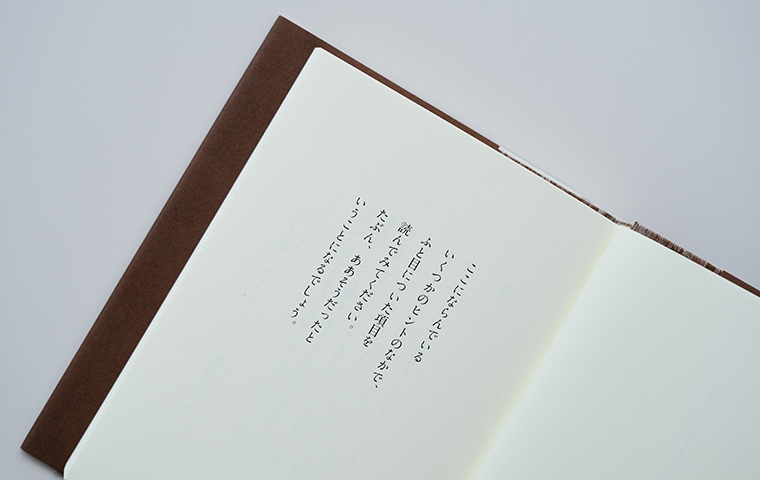 ここにならんでいる
いくつかのヒントのなかで、
ふと目についた項目を
読んでみてください。
たぶん、ああそうだったと
いうことになるでしょう。